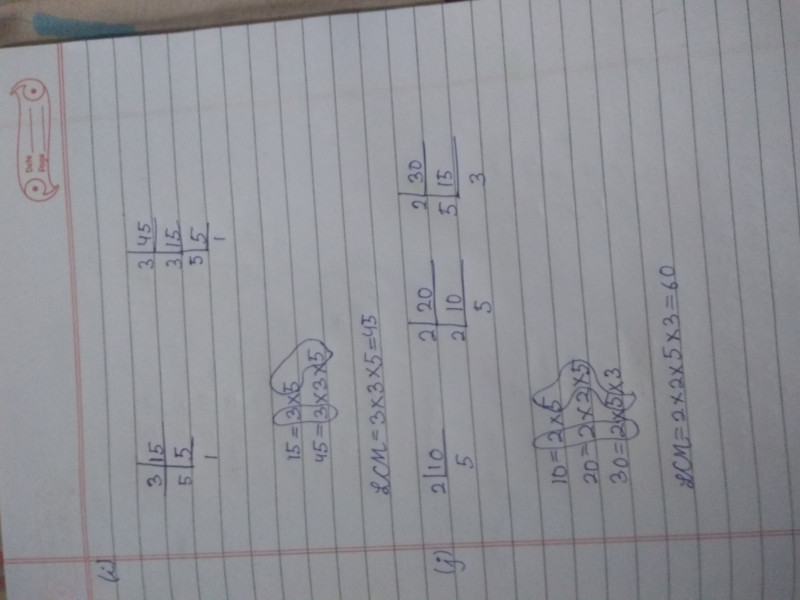 Date
Page
(i)
3 | 15
5 | 5
1
3 | 45
3 | 15
5 | 5
1
15 = 3 x 5
45 = 3 x 3 x 5
LCM = 3 x 3 x 5 = 45
(j)
2 | 10
5
2 | 20
2 | 10
5
2 | 30
5 | 15
3
10 = 2 x 5
20 = 2 x 2 x 5
30 = 2 x 5 x 3
LCM = 2 x 2 x 5 x 3 = 60